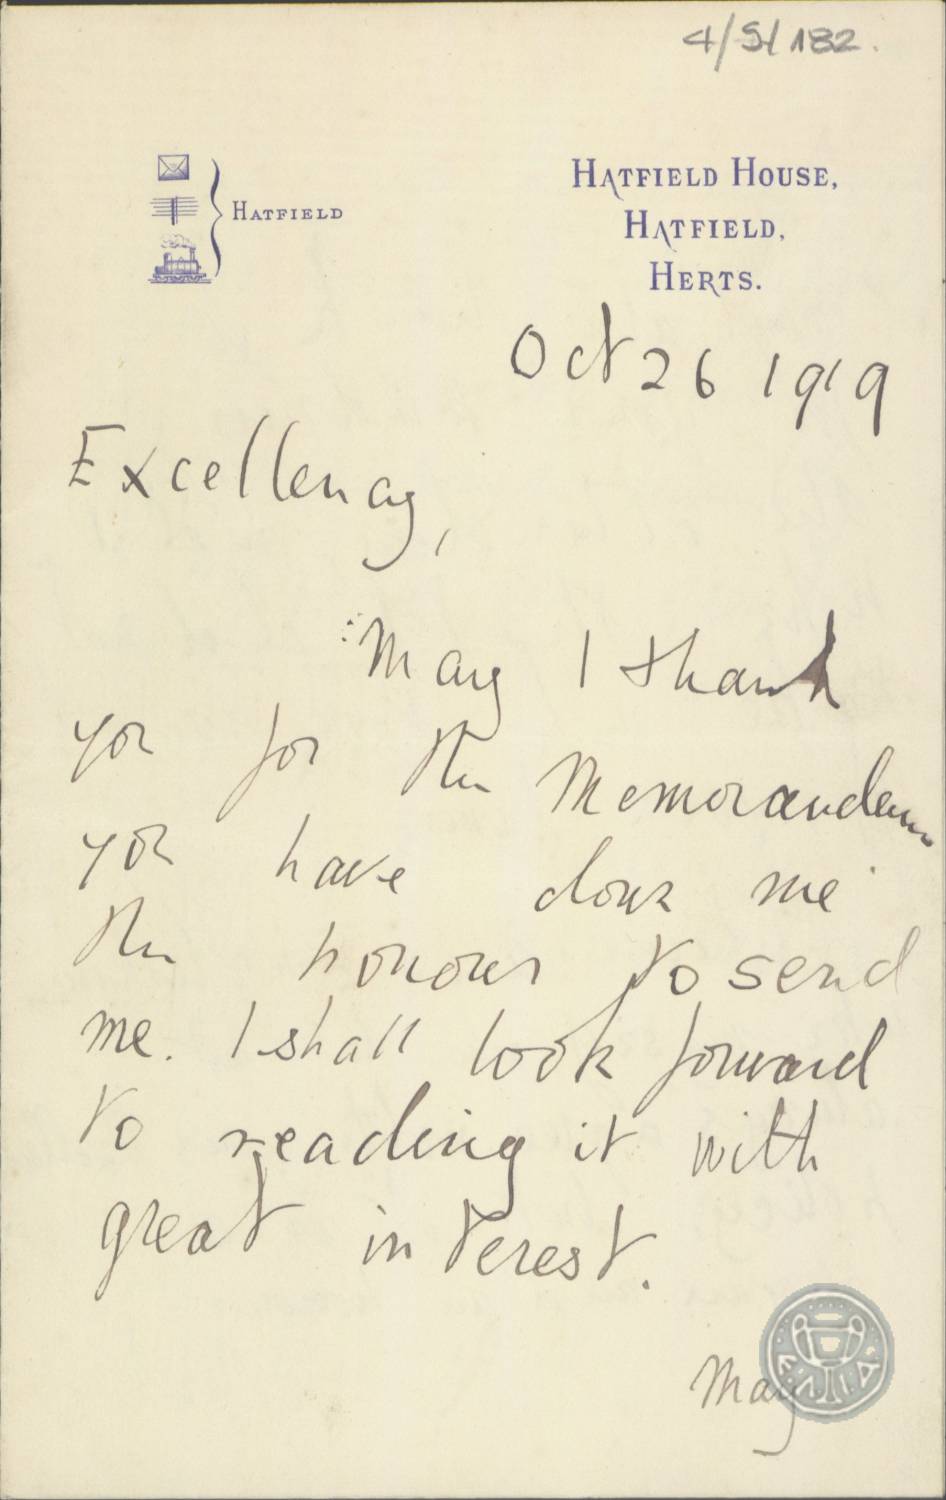 4/5/182.
HATFIELD HOUSE,
HATFIELD,
HERTS.
HATFIELD
Oct 26 1919
Excellency,
May I thank
you for the Memorandum
you have done me
the honour to send
me. I shall look forward
to reading it with
great interest.
May
ΕΛΙΑ